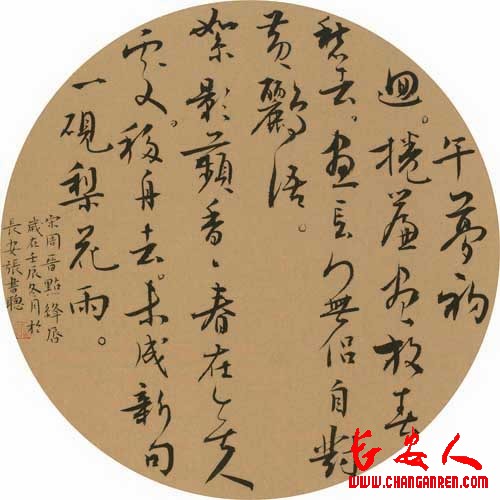 午夢初
迴。捲簾盡放春
愁去。晝長無侣自對
黄鸝語。
絮影蘋香。春在無人
處。移舟去。未成新句
一硯梨花雨。
宋周晋點絳唇
歲在壬辰冬月於
長安張書聰
长安人
WWW.CHANGANREN.COM